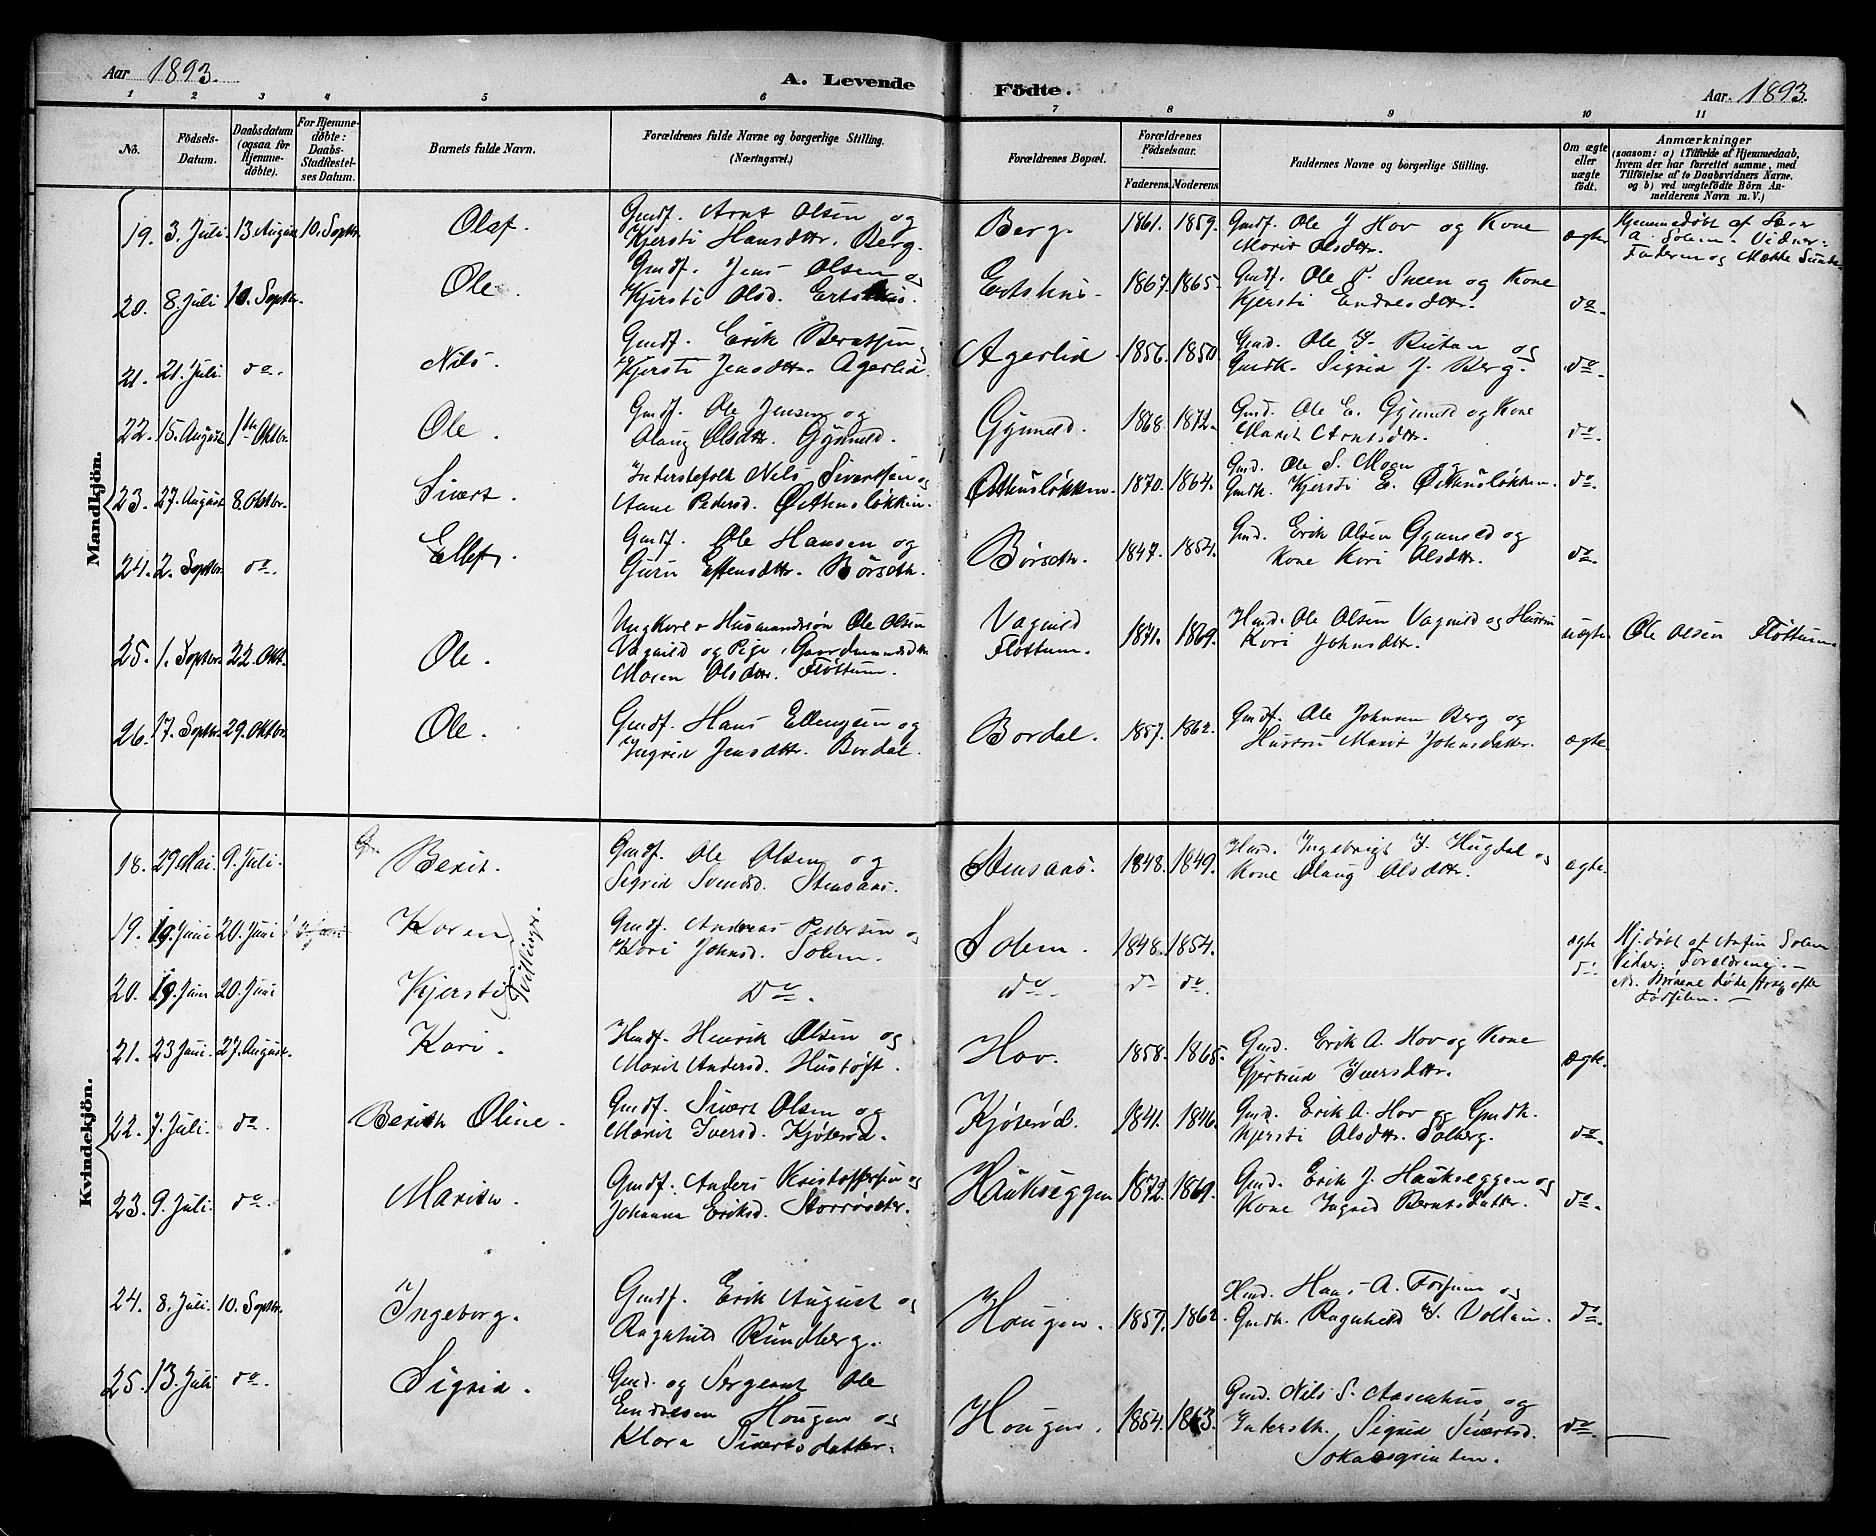 Aar 1893.
A. Levende
Födte.
Aar. 1893.
1 2 3 4 5 6 7 8 9 10 11
No.
Födsels-
Datum.
Daabsdatum
(ogsaa for
Hjemme-
döbte).
For Hjemme-
döbte:
Daabs-
Stadfæstel-
ses Datum.
Barnets fulde Navn.
Forældrenes fulde Navne og borgerlige Stilling.
(Næringsvei.)
Forældrenes Bopæl.
Forældrenes
Födselsaar.
Faderens. Moderens.
Faddernes Navne og borgerlige Stilling.
Om ægte
eller
uægte
födt.
Anmærkninger
(saasom: a) i Tilfælde af Hjemmedaab,
hvem der har forrettet samme, med
Tilföielse af to Daabsvidners Navne.
og b) ved uægtefödte Börn An-
melderens Navn m. V.)
Mandkjön.
19. 3. Juli 13 August 10. Septbr.
Olaf.
Gmdf. Arnt Olsen og
Kjersti Hansdttr. Berg.
Berg. 1861. 1859.
Gmdf. Ole J Hov og Kone
Marit Olsdttr.
ægte
Hjemmedøbt af
A. Solem. Vidner:
Faderen og Mette
20. 8. Juli 10. Septbr.
Ole.
Gmdf. Jens Olsen og
Kjersti Olsd. Ertshus.
Ertshus. 1867. 1865.
Gmdf. Ole P. Sneen og Kone
Kjersti Endresdttr.
do.
21. 21. Juli do.
Nils.
Gmdf. Erik Berntsen og
Kjersti Jensdttr. Agerlid.
Agerlid 1856. 1850.
Gmd. Ole J. og
Gmdk. Sigrid J. Berg.
do.
22. 15. August 1ste Oktbr.
Ole.
Gmdf. Ole Jensen og
Olaug Olsdttr. Gynneld.
Gynneld. 1868. 1872.
Gmd. Ole E. Gynneld og Kone
Marit Arntsdttr.
do.
23. 27. August 8. Oktbr.
Sivert.
Inderstefolk Nils Sivertsen og
Anne Pedersd. Østhusløkken.
Østhusløkken. 1870. 1864.
Gmd. Ole S. Moen og
Gmdk. Kjersti E. Østhusløkken.
do.
24. 2. Septbr. do.
Ellef.
Gmdf. Ole Hansen og
Guru Estensdttr. Børseth.
Børseth. 1847. 1854.
Gmd. Erik Olsen Gynneld og
Kone Kari Olsdttr.
do.
25. 1. Septbr. 22. Okt.
Ole.
Ungkarl & Husmandssøn Ole Olsen
Vagnild og Pige, Gaardmandsdtr
Maren Olsdttr. Fløttum.
Vagnild
Fløttum. 1871. 1869.
Husm. Ole Olsen Vagnild og Hustru
Kari Johnsdttr.
uægte.
Ole Olsen Fløttum.
26. 17. Septbr. 29. Oktbr.
Ole.
Gmdf. Hans Ellingsen og
Ingrid Jensdttr. Bordal.
Bordal. 1857. 1862.
Gmdf. Ole Johnsen Berg og
Hustru Marit Johnsdatter.
ægte.
Kvindekjön.
18. 29 Mai. 9. Juli.
Berit.
Gmdf. Ole Olsen og
Sigrid Svendsd. Stensaas.
Stensaas. 1848. 1849.
Husm. Ingebrigt J. Hugdal og
Kone Olaug Olsdttr.
ægte.
19. 19. Juni 20. Juni
Karen
Tvillinger.
Gmdf. Andreas Pedersen og
Kari Johnsd. Solem.
Solem. 1848. 1854.
ægte
Hj.døbt af Solem
Vidner: Forældrene.
20. 19. Juni 20. Juni
Kjersti
Do.
do. do do.
do.
NB. Børnene døde strax efter
Fødselen.
21. 23 Juni. 27. August.
Kari.
Hmdf. Henrik Olsen og
Marit Andersd. Hustøft.
Hov. 1858. 1865.
Gmd. Erik A. Hov og Kone
Gjertrud Iversdttr.
ægte.
22. 7. Juli. do.
Berith Oline.
Gmdf. Sivert Olsen og
Marit Iversd. Kjøterød.
Kjøterød. 1841. 1846.
Gmd. Erik A. Hov og Gmdk.
Kjersti Olsdttr. Solberg.
do.
23. 9. Juli. do.
Marien.
Gmdf. Anders Kristoffersen og
Johanna Eriksd. Storrøseter.
Haukseggen 1872. 1869.
Gmd. Erik J. Haukseggen og
Kone Ingrid Berntsdatter.
do.
24. 8. Juli. 10. Septbr.
Ingeborg.
Gmdf. Erik August og
Ragnhild Rundberg.
Hougen. 1857. 1862.
Hmd. Hans A. Forsum og
Gmdk. Ragnhild I. Vollan.
do.
25. 13. Juli do.
Sigrid.
Gmd. og Sergeant Ole
Endresen Hougen og
Klara Sivertsdatter.
Hougen. 1854. 1863.
Gmd. Nils S. Aasenhus, og
Inderstk. Sigrid Sivertsd.
Sokadsgrinden.
do.